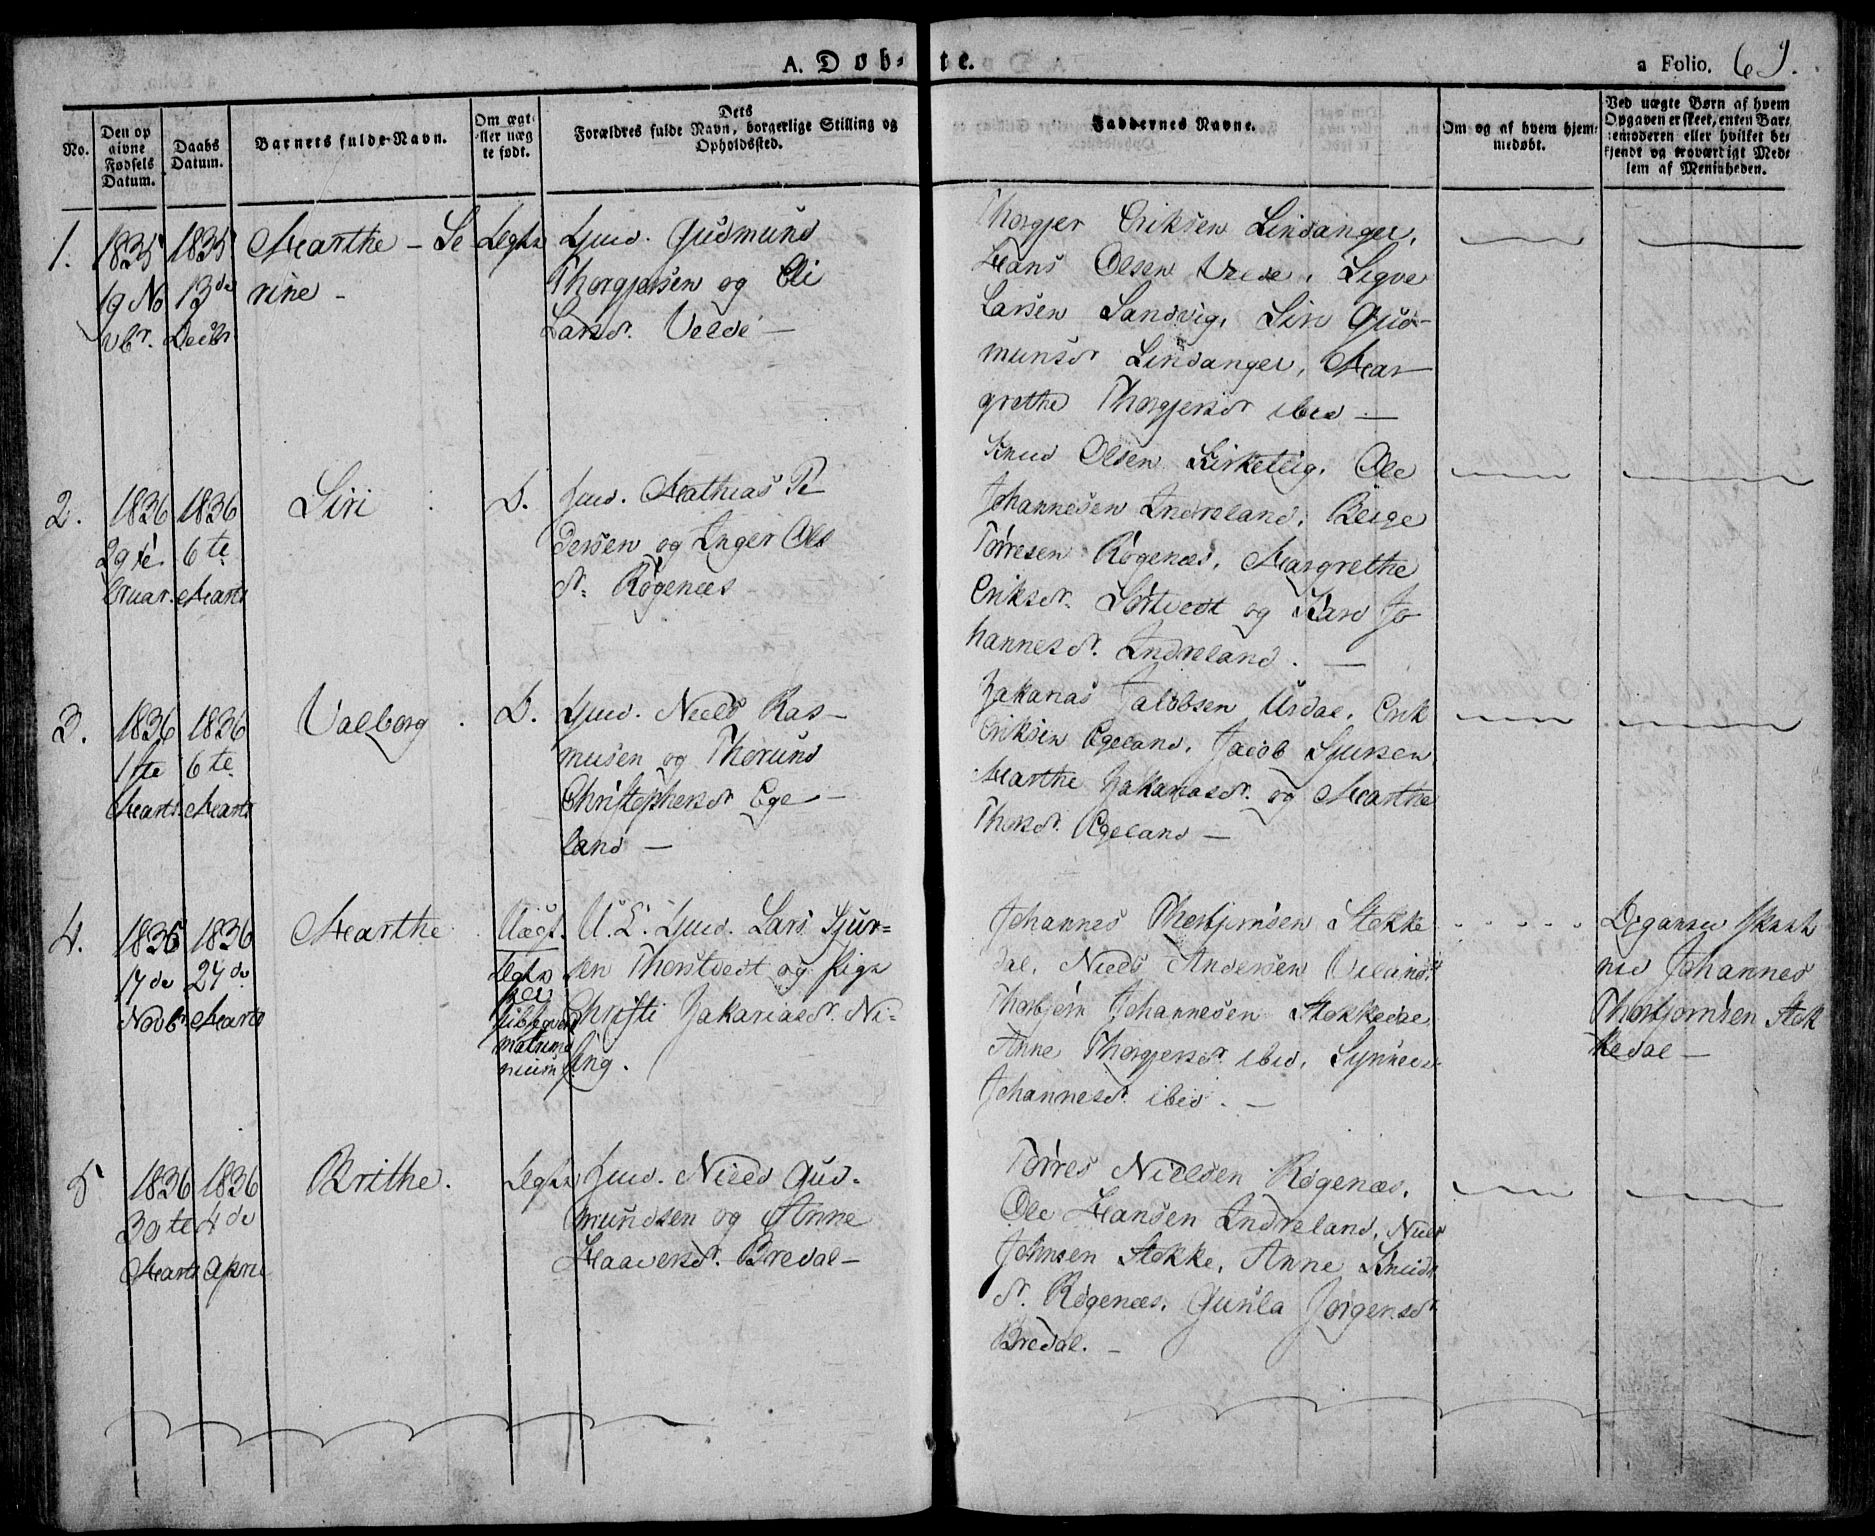 A. Døb-
te.
a Folio. 69.
No.
Den op
givne
Fødsels
Datum.
Daabs
Datum.
Barnets fulde Navn.
Om ægt-
eller uæg
te født.
Dets
Forældres fulde Navn, borgerlige Stilling og
Opholdssted.
Faddernes Navne.
Om og af hvem hjem-
medøbt.
Ved uægte Børn af hvem
Opgaven er skeet, enten Bar-
nemoderen eller hvilket be-
kjendt og troværdigt Med-
lem af Menigheden.
1.
1835
19 No
vbr.
1835
13de
Decbr
Marthe - Se
rine -
Ægte
Gmd. Gudmund
Thorgjersen og Eli
Larsdr. Velde -
Thorgjer Eriksen Lindanger,
Hans Olsen Velde, Sigve
Larsen Sandvig, Siri Gud-
mundsdr Lindanger, Mar-
grethe Thorgjersdr ibid -
2.
1836
29 Fe
bruar.
1836
6te
Marts
Siri
D.
Gmd. Mathias Pe
dersen og Inger Ols
dr. Røgenæs
Knud Olsen Kirketeig, Ole
Johannesen Indreland, Børge
Tørresen Røgenæs, Margrethe
Eriksdr. Sørtvedt og Kari Jo
hannesdr. Indreland. -
3.
1836
1ste
Marts
1836
6te
Marts
Valborg
D.
Gmd. Niels Ras-
musen og Thorund
Christophersdr Ege-
land -
Zakarias Jakobsen Urdal, Erik
Eriksen Egeland, Jacob Sjursen
Marthe Zakariasdr. og Marthe
Thorsdr. Egeland -
4.
1835
17de
Novbr
1836
27de
Marts
Marthe
Uægt.
Ægte
matrimo
nium
U. E. Gmd. Lars Sjur-
sen Thorstvedt og Pige
Christi Zakariasdr. Ni-
sing.
Johannes Thorbjørnsen Stokke
dal, Niels Andersen Oeland
Thorbjørn Johannesen Stokkedal
Anne Thorgjersdr. ibid, Synneve
Johannesdr. ibid. -
Johannes
Thorbjørnsen Stok
kedal -
5
1836
30te
Marts
1836
4de
April
Brithe.
Ægte
Gmd. Niels Gud-
mundsen og Anne
Haaversdr. Bredal -
Tørres Nielsen Røgenæs,
Ole Hansen Indreland, Niels
Johnsen Stokke, Anne Knuds
dr. Røgenæs, Gunla Jørgensdr
Bredal. -